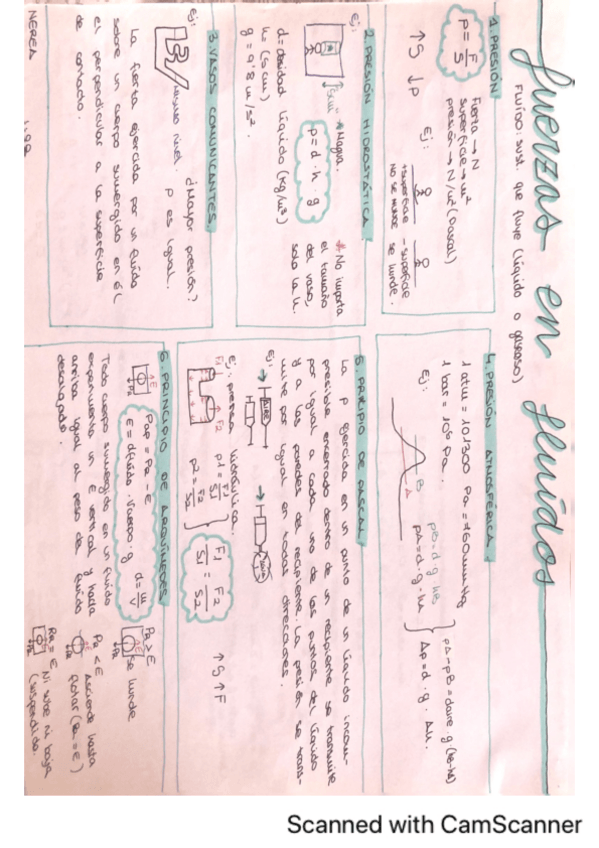 Fuerzas en fluidos
Fluido: sust. que fluye (líquido o gaseoso)
1. PRESIÓN
P = F/S
Fuerza → N
superficie → m²
presión → N/m² (Pascal)
↑S ↓P
Ej:
+ superficie
No se hunde
- superficie
se hunde.
2. PRESIÓN HIDROSTÁTICA
Ej:
P = d · h · g
* No importa
el tamaño
del vaso,
solo la h.
d = densidad líquido (kg/m³)
h = (5 cm)
g = 9'8 m/s²
3. VASOS COMUNICANTES
Ej:
Mismo nivel.
¿Mayor presión?
P es igual.
La fuerza ejercida por un fluido
sobre un cuerpo sumergido en él
es perpendicular a la superficie
de contacto.
NEREA
4. PRESIÓN ATMOSFÉRICA
1 atm = 101300 Pa = 760 mmHg
1 bar = 10⁵ Pa.
Ej:
B
A
PB = d · g · hB
PA = d · g · hA
ΔP = d · g · Δh.
5. PRINCIPIO DE PASCAL
La P ejercida en un punto de un líquido incom-
presible encerrado dentro de un recipiente se transmite
por igual a cada uno de los puntos del líquido
y a las paredes del recipiente. La presión se trans-
mite por igual en todas direcciones.
Ej:
Ej: prensa hidráulica.
F1
F2
P1 = F1/S1
P2 = F2/S2
F1/S1 = F2/S2
↑S ↑F
6. PRINCIPIO DE ARQUÍMEDES
Pap = PR - E
E = dfluido · Vcuerpo · g
d = m/V
Todo cuerpo sumergido en un fluido
experimenta un E vertical y hacia
arriba igual al peso del fluido
desalojado.
PR > E
se hunde
PR < E Asciende hasta
flotar (PR = E)
PR = E
Ni sube ni baja
(suspendido).
Scanned with CamScanner